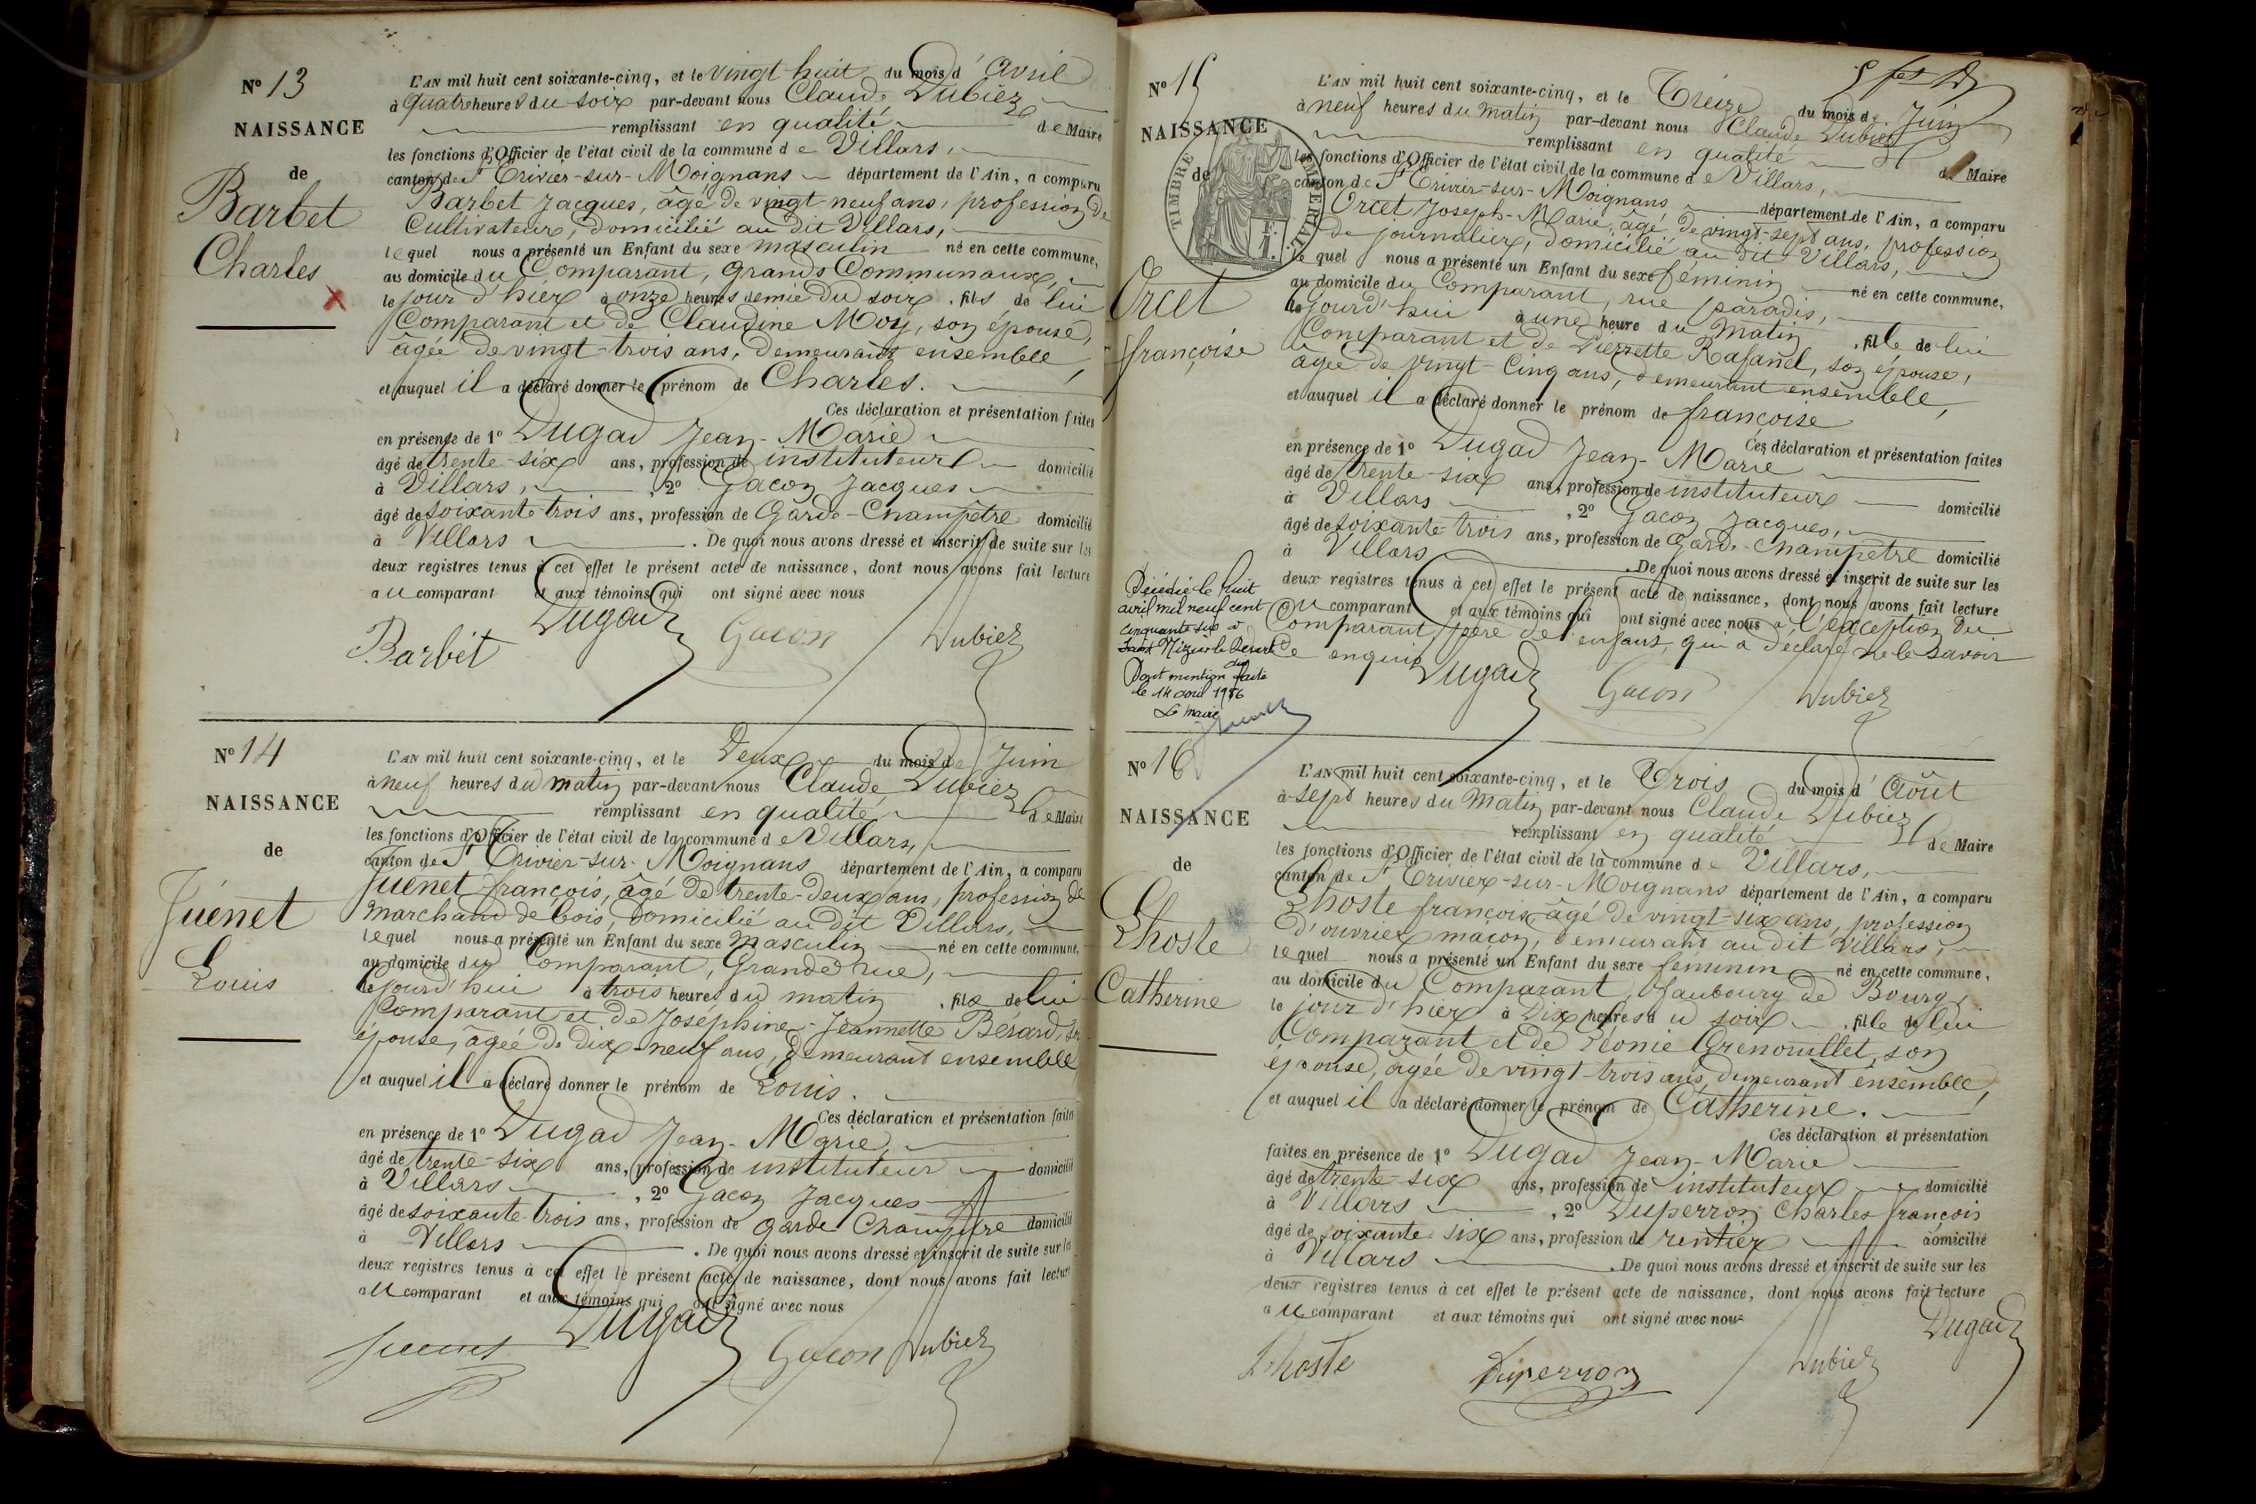 N° 13
NAISSANCE
de
Barbet
Charles
L'AN mil huit cent soixante-cinq, et le vingt huit du mois d'avril
à quatre heures du soir par-devant nous Claude Dubiez
remplissant en qualité de Maire
les fonctions d'Officier de l'état civil de la commune de Villars,
canton de St Trivier-sur-Moignans département de l'Ain, a comparu
Barbet Jacques, âgé de vingt-neuf ans, profession de
Cultivateur, domicilié au dit Villars,
lequel nous a présenté un Enfant du sexe masculin né en cette commune,
au domicile du Comparant, Grands Communaux,
le jour d'hier à onze heures demie du soir, fils de lui
Comparant et de Claudine Moy, son épouse,
âgée de vingt-trois ans, demeurant ensemble,
et auquel il a déclaré donner le prénom de Charles.
Ces déclaration et présentation faites
en présence de 1° Dugad Jean-Marie
âgé de trente-six ans, profession de instituteur domicilié
à Villars, 2° Gacon Jacques
âgé de soixante-trois ans, profession de Garde-Champêtre domicilié
à Villars. De quoi nous avons dressé et inscrit de suite sur les
deux registres tenus à cet effet le présent acte de naissance, dont nous avons fait lecture
au comparant et aux témoins qui ont signé avec nous
Barbet Dugad Gacon Dubiez
N° 14
NAISSANCE
de
Juénet
Louis
L'AN mil huit cent soixante-cinq, et le Deux du mois de Juin
à neuf heures du matin par-devant nous Claude Dubiez
remplissant en qualité de Maire
les fonctions d'Officier de l'état civil de la commune de Villars,
canton de St Trivier-sur-Moignans département de l'Ain, a comparu
Juénet françois, âgé de trente-deux ans, profession de
marchand de bois, domicilié au dit Villars,
lequel nous a présenté un Enfant du sexe Masculin né en cette commune,
au domicile du Comparant, Grande rue,
cejourd'hui à trois heures du matin, fils de lui
Comparant et de Joséphine-Jeannette Bérard, son
épouse, âgée de dix-neuf ans, demeurant ensemble
et auquel il a déclaré donner le prénom de Louis.
Ces déclaration et présentation faites
en présence de 1° Dugad Jean-Marie
âgé de trente-six ans, profession de instituteur domicilié
à Villars, 2° Gacon Jacques
âgé de soixante-trois ans, profession de garde Champêtre domicilié
à Villars. De quoi nous avons dressé et inscrit de suite sur les
deux registres tenus à cet effet le présent acte de naissance, dont nous avons fait lecture
au comparant et aux témoins qui ont signé avec nous
Juenet Dugad Gacon Dubiez
N° 15
NAISSANCE
de
TIMBRE IMPÉRIAL
Orcet
françoise
L'AN mil huit cent soixante-cinq, et le Treize du mois de Juin
à neuf heures du matin par-devant nous Claude Dubiez
remplissant en qualité de Maire
les fonctions d'Officier de l'état civil de la commune de Villars,
canton de St Trivier-sur-Moignans département de l'Ain, a comparu
Orcet Joseph-Marie, âgé de vingt-sept ans, profession
de journalier, domicilié au dit Villars,
lequel nous a présenté un Enfant du sexe féminin né en cette commune,
au domicile du Comparant, rue paradis,
cejourd'hui à une heure du matin, fille de lui
Comparant et de Pierrette Rafanel, son épouse,
âgée de vingt-cinq ans, demeurant ensemble,
et auquel il a déclaré donner le prénom de françoise
Ces déclaration et présentation faites
en présence de 1° Dugad Jean-Marie
âgé de trente-six ans, profession de instituteur domicilié
à Villars, 2° Gacon Jacques,
âgé de soixante-trois ans, profession de Garde-Champêtre domicilié
à Villars. De quoi nous avons dressé et inscrit de suite sur les
deux registres tenus à cet effet le présent acte de naissance, dont nous avons fait lecture
au comparant et aux témoins qui ont signé avec nous à l'exception du
Comparant, père de l'enfant, qui a déclaré ne le savoir
de ce enquis Dugad Gacon Dubiez
Décédée le huit
avril mil neuf cent
cinquante six à
Saint Nizier le Désert
Dont mention faite
le 14 avril 1956
Le maire
N° 16
NAISSANCE
de
Lhoste
Catherine
L'AN mil huit cent soixante-cinq, et le Trois du mois d'Août
à sept heures du Matin par-devant nous Claude Dubiez
remplissant en qualité de Maire
les fonctions d'Officier de l'état civil de la commune de Villars,
canton de St Trivier-sur-Moignans département de l'Ain, a comparu
Lhoste françois âgé de vingt-six ans, profession
d'ouvrier maçon, demeurant au dit Villars,
lequel nous a présenté un Enfant du sexe féminin né en cette commune,
au domicile du Comparant, faubourg de Bourg,
le jour d'hier à Dix heures du soir, fille de lui
Comparant et de Léonie Grenouillet, son
épouse, âgée de vingt-trois ans, demeurant ensemble,
et auquel il a déclaré donner le prénom de Catherine.
Ces déclaration et présentation
faites en présence de 1° Dugad Jean-Marie
âgé de trente-six ans, profession de instituteur domicilié
à Villars, 2° Duperron Charles françois
âgé de soixante six ans, profession de rentier domicilié
à Villars. De quoi nous avons dressé et inscrit de suite sur les
deux registres tenus à cet effet le présent acte de naissance, dont nous avons fait lecture
au comparant et aux témoins qui ont signé avec nous
Dugad
Lhoste Duperron Dubiez